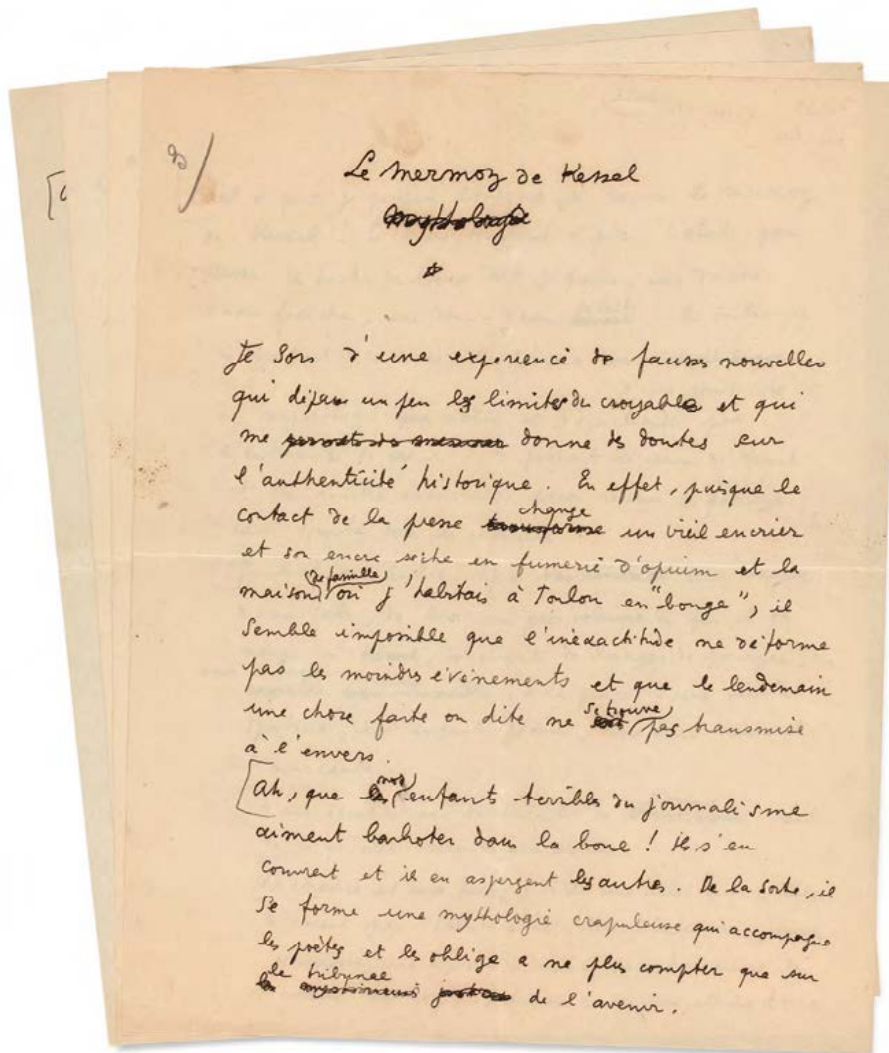 8/
Le Mermoz de Kessel
Mythologie
*
Je sors d'une expérience de fausses nouvelles
qui dépasse un peu les limites du croyable et qui
me donne des doutes sur
l'authenticité historique. En effet, puisque le
contact de la presse transforme change un vieil encrier
et son encre sèche en fumerie d'opium et la
maison de famille où j'habitais à Toulon en "bouge", il
semble impossible que l'inexactitude ne déforme
pas les moindres événements et que le lendemain
une chose faite ou dite ne se trouve pas transmise
à l'envers.
[Ah, que nos enfants terribles du journalisme
aiment barboter dans la boue ! Ils s'en
couvrent et ils en aspergent les autres. De la sorte, il
se forme une mythologie crapuleuse qui accompagne
les poètes et les oblige a ne plus compter que sur
le tribunal
de l'avenir.